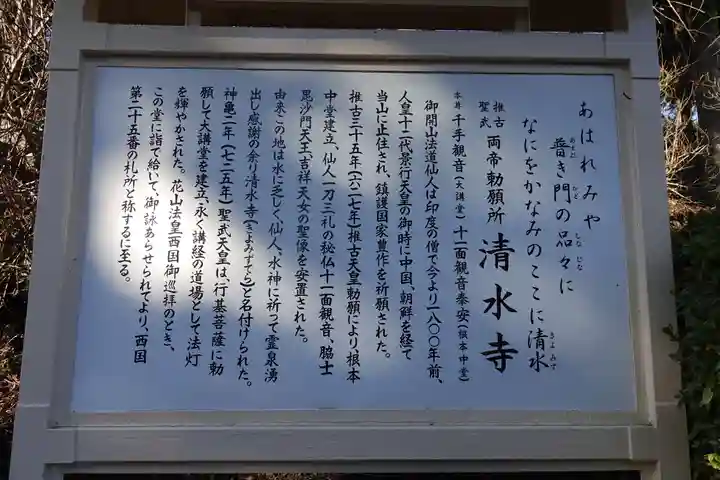 あはれみや
普き門の品々に
あまね かど しな じな
なにをかなみのここに清水
きよ みず
推古
聖武
両帝勅願所 清水寺
本尊 千手観音(大講堂) 十一面観音奉安(根本中堂)
御開山法道仙人は印度の僧で今より一八〇〇年前、
人皇十二代景行天皇の御時に中国、朝鮮を経て
当山に止住され、鎮護国家豊作を祈願された。
推古三十五年(六二七年)推古天皇勅願により、根本
中堂建立、仙人一刀三礼の秘仏十一面観音、脇士
毘沙門天王、吉祥天女の聖像を安置された。
由来この地は水に乏しく、仙人、水神に祈って霊泉湧
出し感謝の余り清水寺(きよみずでら)と名付けられた。
神亀二年(七二五年)聖武天皇は、行基菩薩に勅
願して大講堂を建立、永く講経の道場として法灯
を輝やかされた。花山法皇西国御巡拝のとき、
この堂に詣で給いて、御詠あらせられてより、西国
第二十五番の札所と称するに至る。